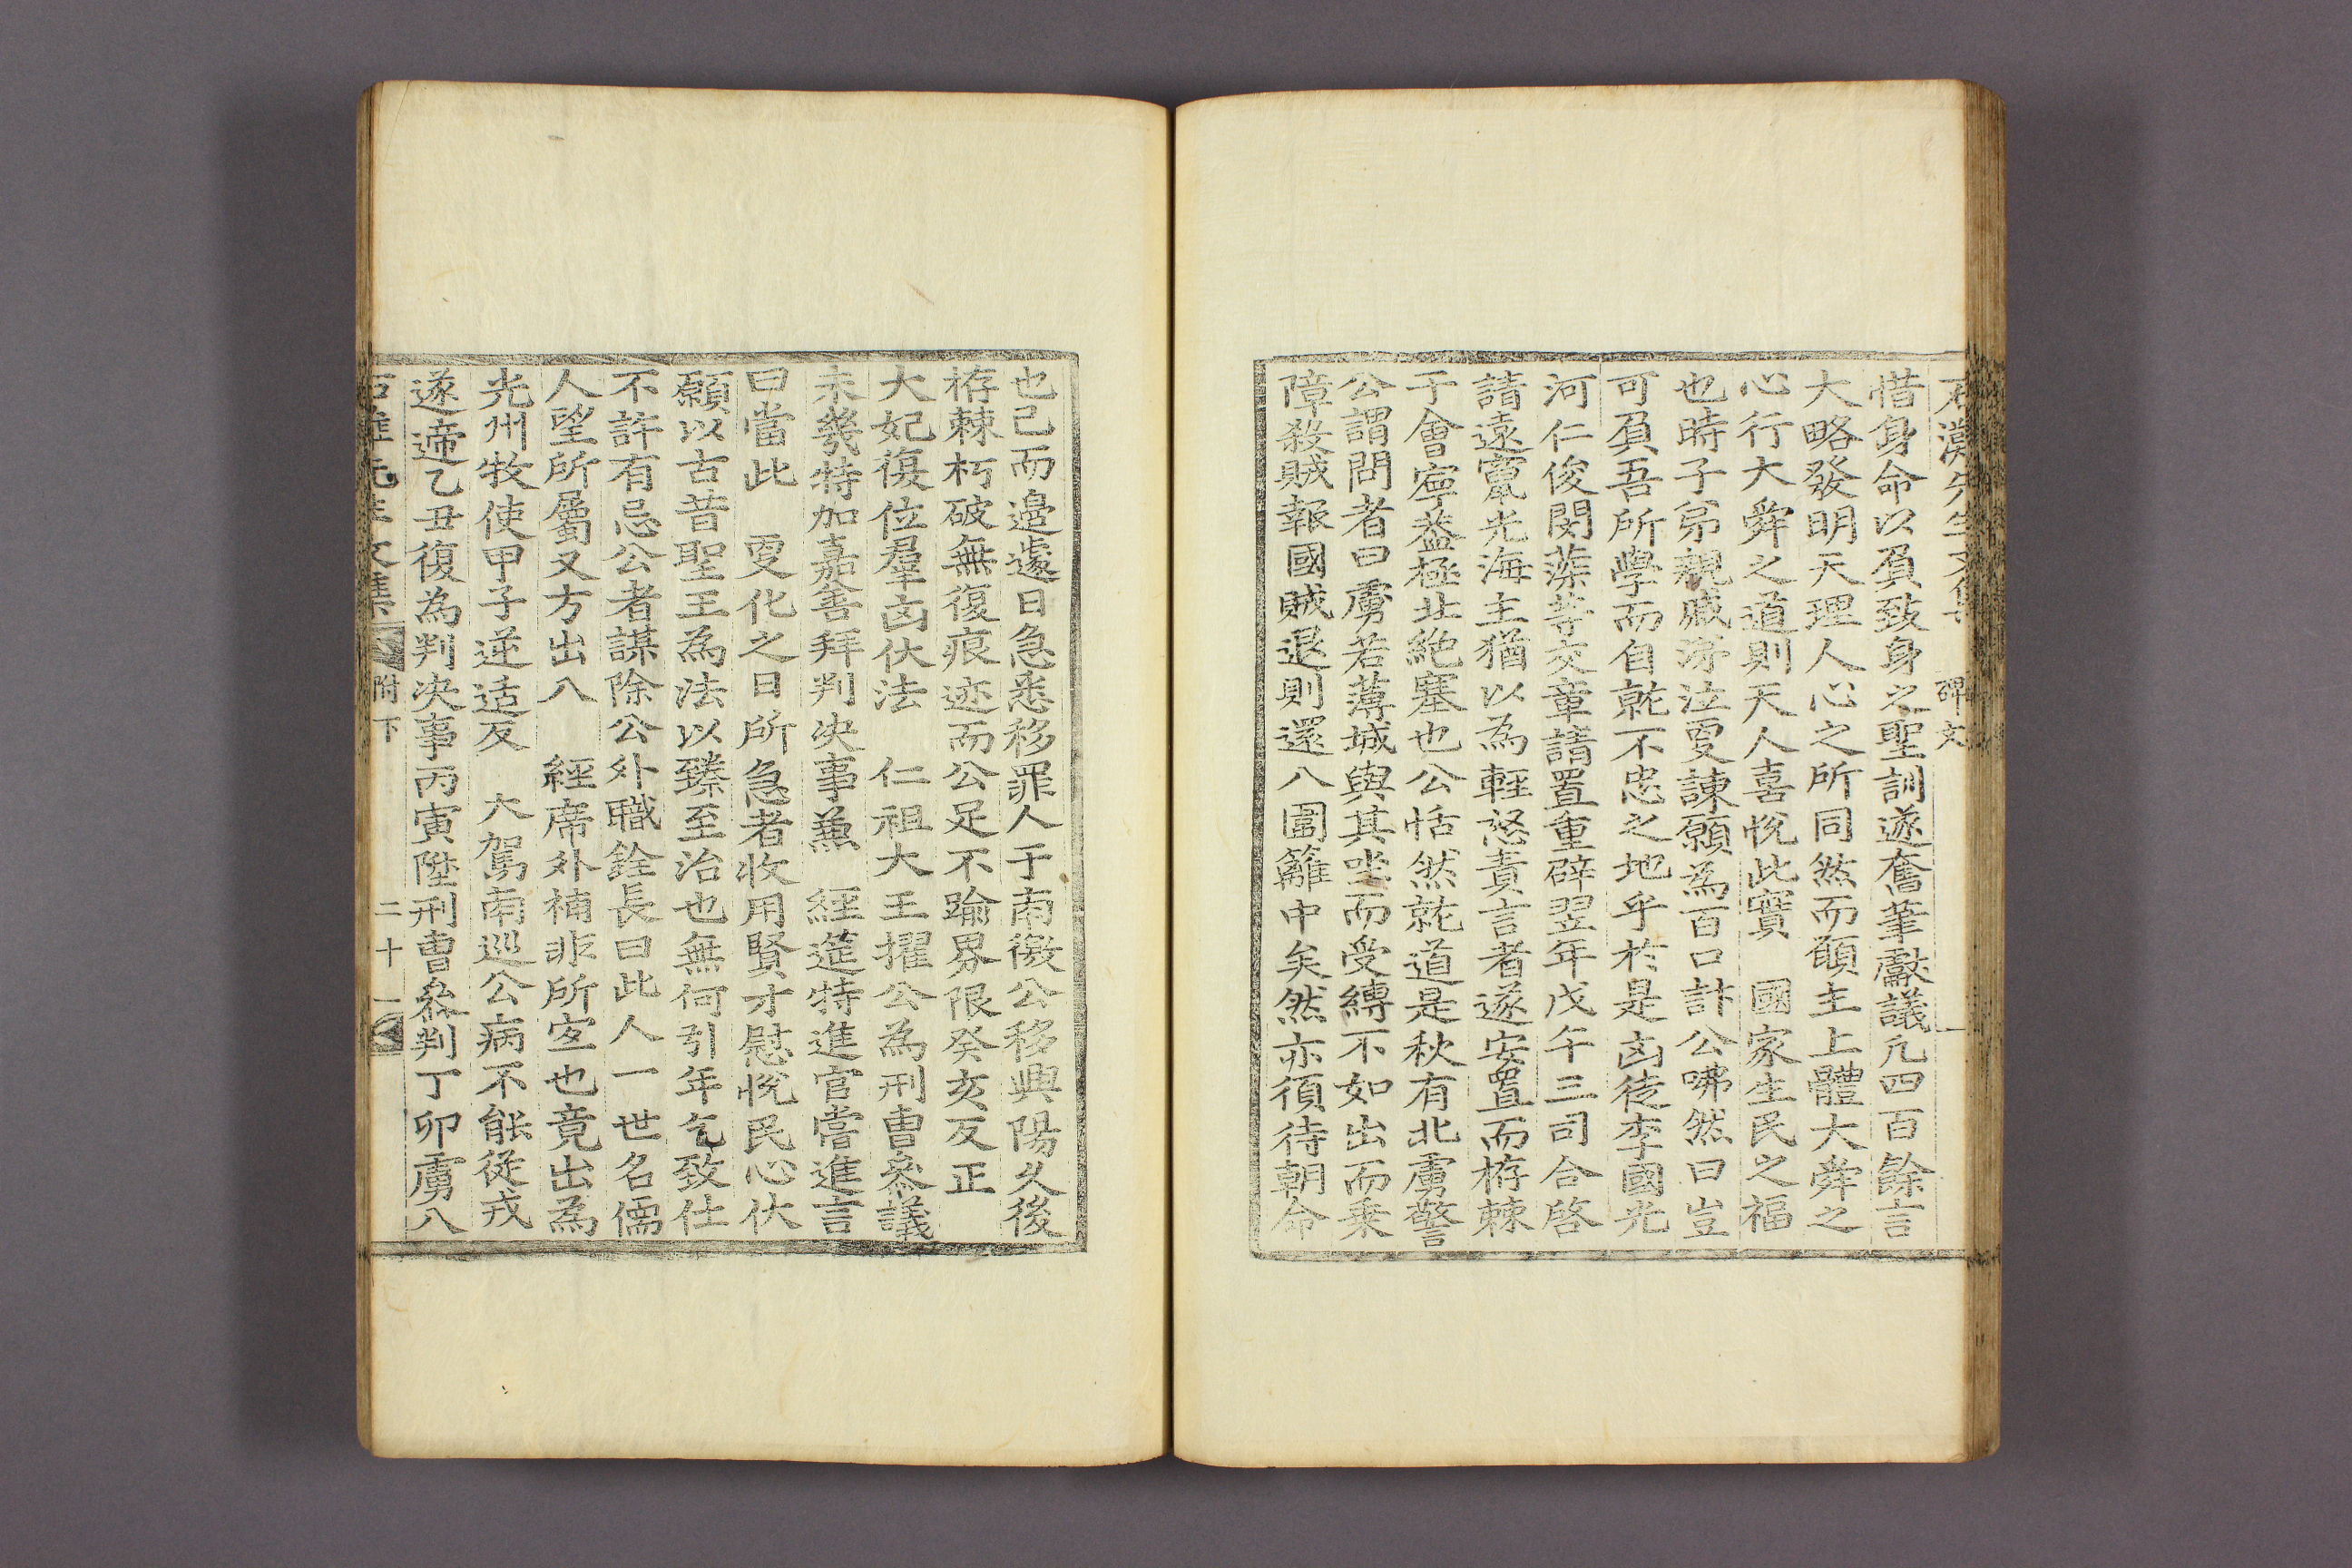 先生文集 碑文
惜身命以負致身之聖訓遂奮筆獻議凡四百餘言
大略發明天理人心之所同然而願主上體大舜之
心行大舜之道則天人喜悅此實 國家生民之福
也時子弟親戚涕泣更諫願為百口計公咈然曰豈
可負吾所學而自就不忠之地乎於是凶徒李國光
河仁俊閔蕅等交章請置重辟翌年戊午三司合啓
請遠竄光海主猶以為輕怒責言者遂安置而栫棘
于會寧益極北絶塞也公恬然就道是秋有北虜警
公謂問者曰虜若薄城與其坐而受縛不如出而乗
障殺賊報國賊退則還入圍籬中矣然亦須待朝命
也已而邉遽日急悉移罪人于南徼公移興陽久後
栫棘朽破無復痕迹而公足不踰界限癸亥反正
大妃復位羣凶伏法 仁祖大王擢公為刑曹叅議
未幾特加嘉善拜判决事兼 經筵特進官嘗進言
曰當此 更化之日所急者收用賢才慰悅民心伏
願以古昔聖王為法以臻至治也無何引年乞致仕
不許有忌公者謀除公外職銓長曰此人一世名儒
人望所屬又方出入 經席外補非所宜也竟出為
光州牧使甲子逆适反 大駕南巡公病不能從戎
遂遞乙丑復為判决事丙寅陞刑曹叅判丁卯虜入
文集 附下 二十一